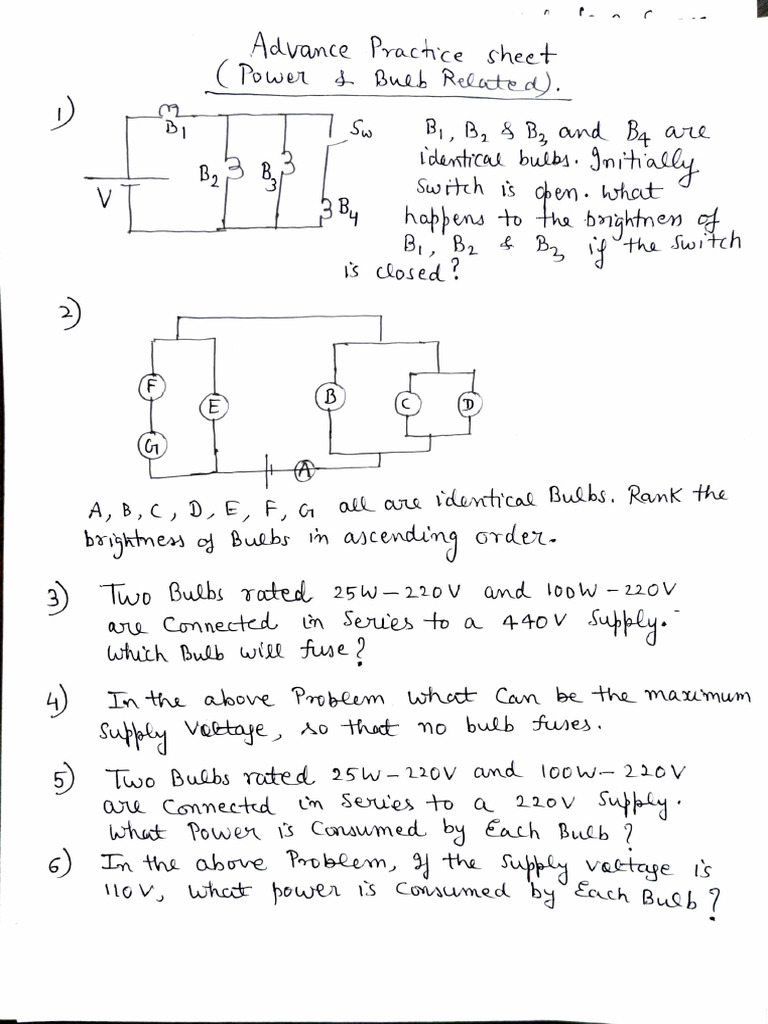 Advance Practice sheet
(Power & Bulb Related).
1)
B1
B2
B3
B4
Sw
V
B1, B2 & B3 and B4 are
identical bulbs. Initially
switch is open. what
happens to the brightness of
B1, B2 & B3 if the switch
is closed?
2)
F
G
E
B
C
D
A
A, B, C, D, E, F, G all are identical Bulbs. Rank the
brightness of Bulbs in ascending order.
3) Two Bulbs rated 25W-220V and 100W-220V
are Connected in Series to a 440V Supply.
Which Bulb will fuse?
4) In the above Problem what Can be the maximum
Supply Voltage, so that no bulb fuses.
5) Two Bulbs rated 25W-220V and 100W-220V
are Connected in Series to a 220V Supply.
What Power is Consumed by Each Bulb?
6) In the above Problem, If the Supply voltage is
110V, What power is Consumed by Each Bulb?